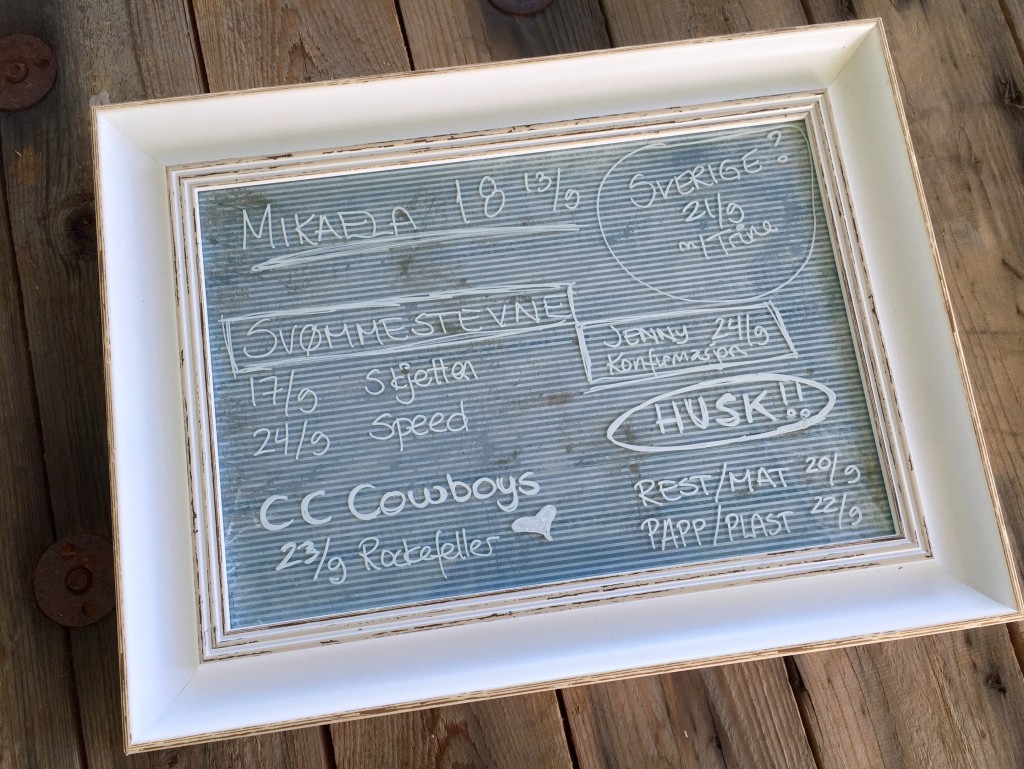 MIKAELA 18 13/9
SVERIGE?
21/9
m/Trine
SVØMMESTEVNE
17/9 Skjetten
24/9 Speed
JENNY 24/9
Konfirmasjon
HUSK!!
CC Cowboys
23/9 Rockefeller
REST/MAT 20/9
PAPP/PLAST 22/9